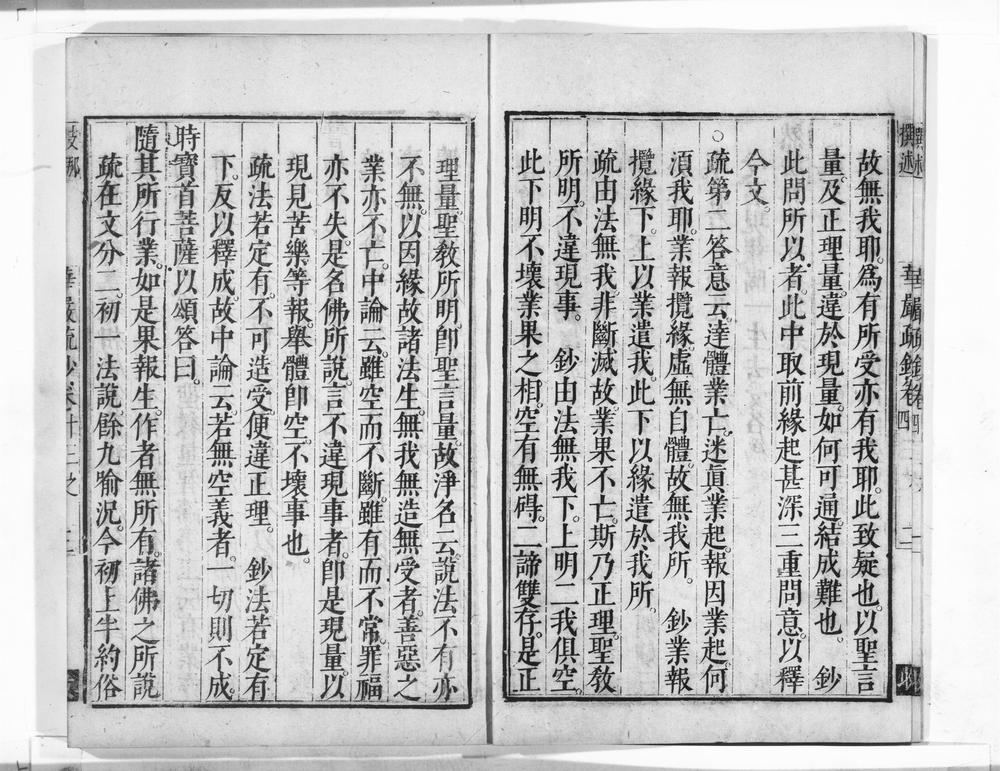 故無我耶。爲有所受亦有我耶。此致疑也。以聖言
量。及正理量。違於現量。如何可通。結成難也。　鈔
此問所以者。此中取前緣起甚深三重問意。以釋
今文。
○
疏第二答意云。達體業亡。迷眞業起。報因業起。何
須我耶。業報攬緣。虛無自體。故無我所。　鈔業報
攬緣下。上以業遣我。此下以緣遣於我所。
疏由法無我。非斷滅故。業果不亡。斯乃正理。聖敎
所明。不違現事。　鈔由法無我下。上明二我俱空。
此下明不壞業果之相。空有無碍。二諦雙存。是正
理量。聖敎所明。卽聖言量。故淨名云。說法不有亦
不無。以因緣故諸法生。無我無造無受者。善惡之
業亦不亡。中論云。雖空而不斷。雖有而不常。罪福
亦不失。是名佛所說。言不違現事者。卽是現量。以
現見苦樂等報。擧體卽空。不壞事也。
疏法若定有。不可造受。便違正理。　鈔法若定有
下。反以釋成。故中論云。若無空義者。一切則不成
時寶首菩薩以頌答曰。
隨其所行業。如是果報生。作者無所有。諸佛之所說
疏在文分二。初一法說。餘九喻況。今初上半約俗
華嚴疏鈔卷